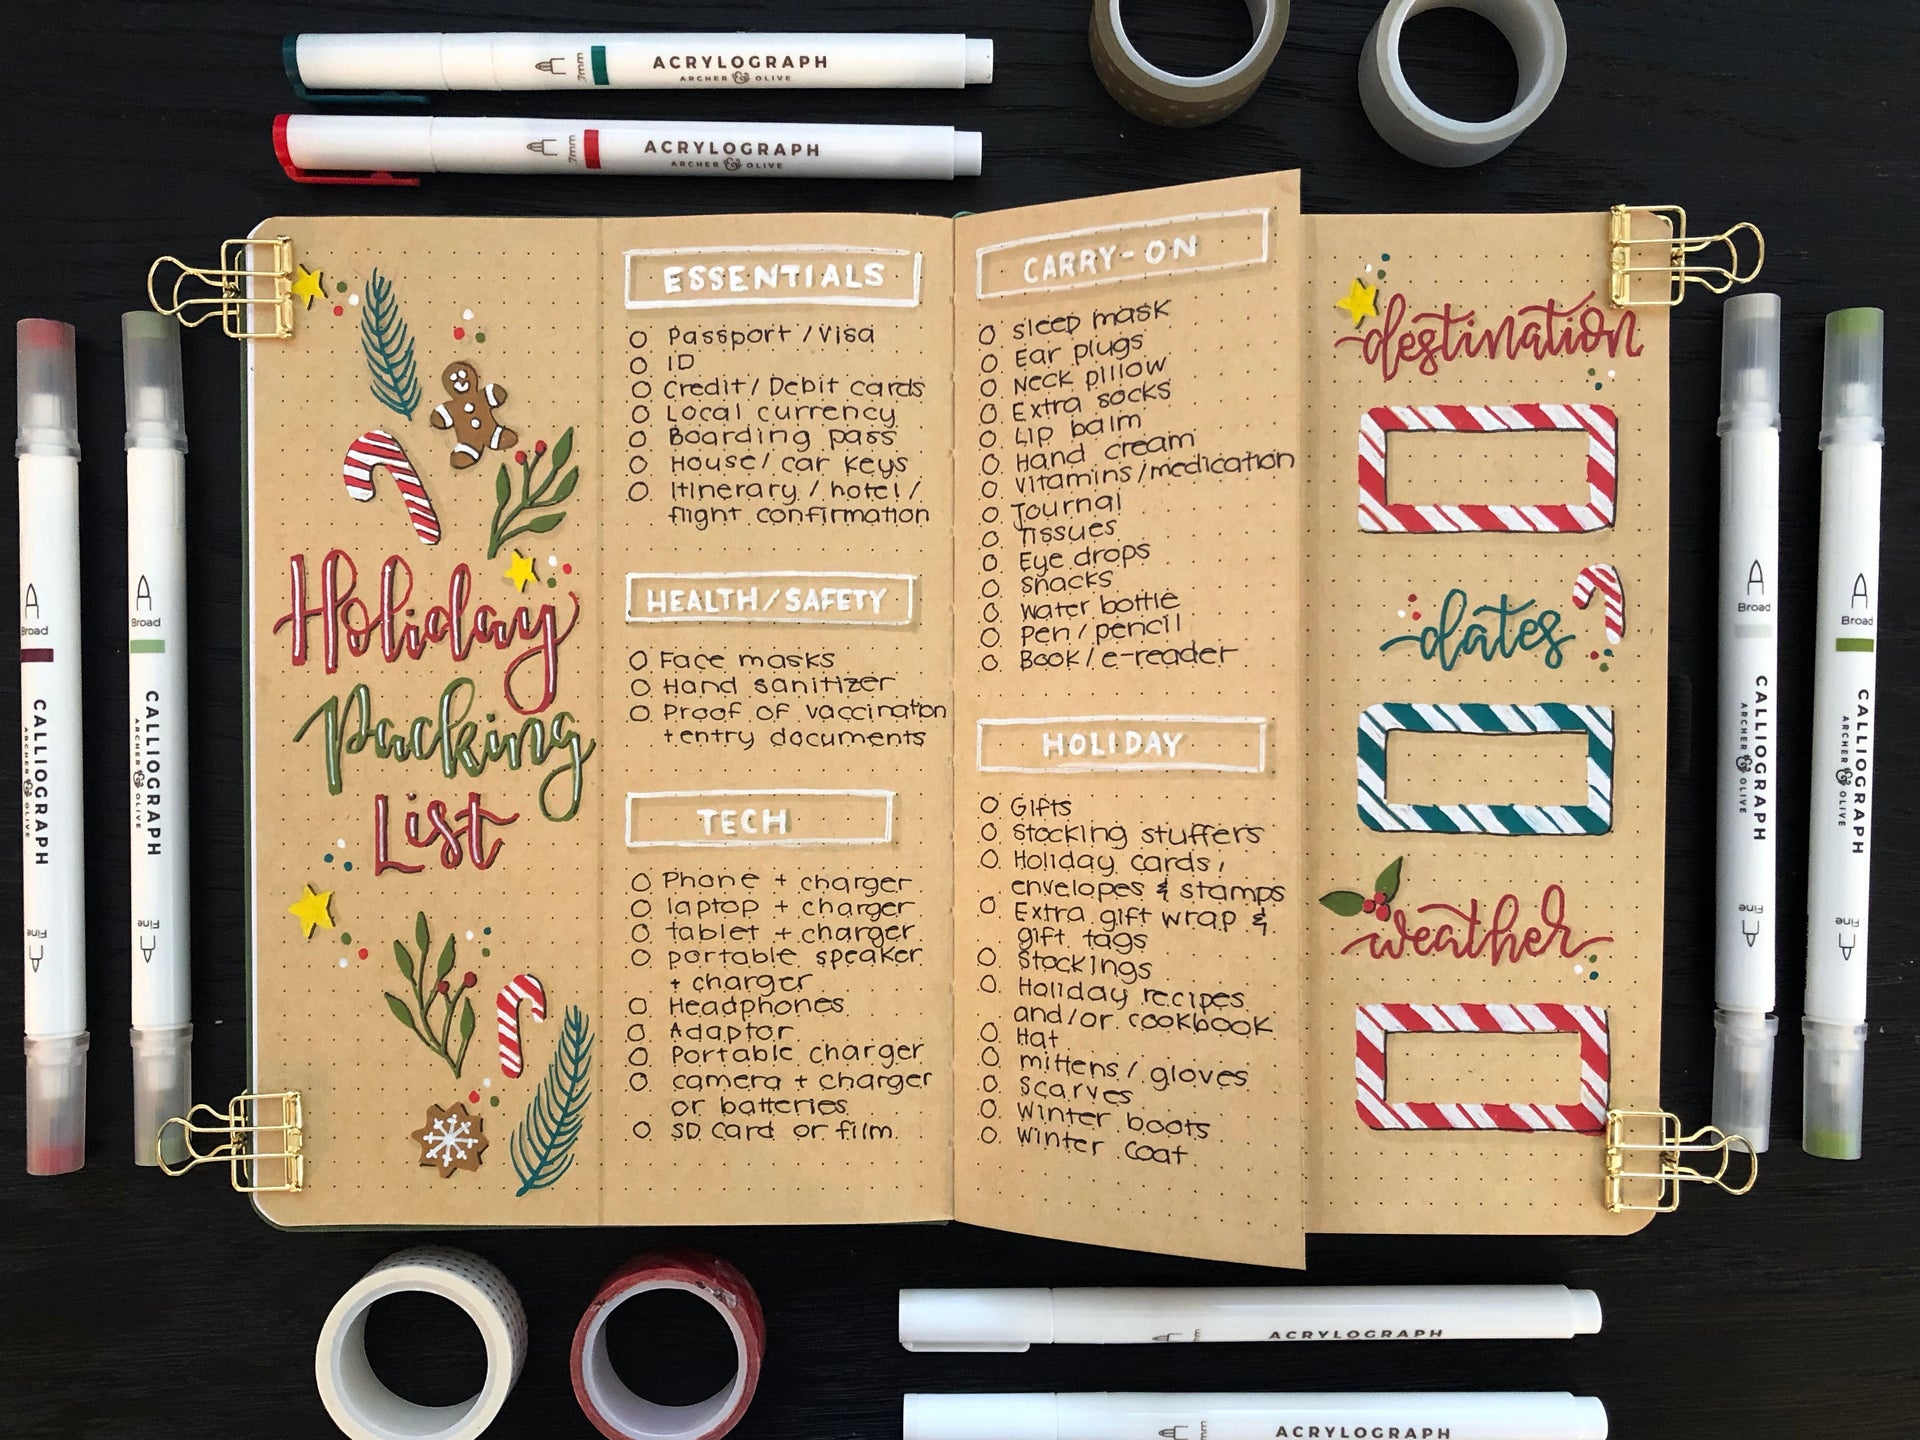 ACRYLOGRAPH
ARCHER & OLIVE
7mm
ACRYLOGRAPH
ARCHER & OLIVE
7mm
Holiday
Packing
List
ESSENTIALS
Passport / Visa
ID
Credit / Debit cards
Local currency
Boarding pass
House / car keys
Itinerary / hotel /
flight confirmation
HEALTH/SAFETY
Face masks
Hand sanitizer
Proof of vaccination
+ entry documents
TECH
Phone + charger
laptop + charger
tablet + charger
portable speaker
+ charger
Headphones
Adaptor
Portable charger
camera + charger
or batteries
SD card or film
CARRY-ON
Sleep mask
Ear plugs
Neck pillow
Extra socks
Lip balm
Hand cream
Vitamins/medication
Journal
Tissues
Eye drops
Snacks
Water bottle
Pen / pencil
Book / e-reader
HOLIDAY
Gifts
Stocking stuffers
Holiday cards,
envelopes & stamps
Extra gift wrap &
gift tags
Stockings
Holiday recipes
and/or cookbook
Hat
mittens / gloves
Scarves
Winter boots
Winter coat
destination
dates
weather
Broad
CALLIOGRAPH
ARCHER & OLIVE
Fine
Broad
CALLIOGRAPH
ARCHER & OLIVE
Fine
Broad
CALLIOGRAPH
ARCHER & OLIVE
Fine
Broad
CALLIOGRAPH
ARCHER & OLIVE
Fine
ACRYLOGRAPH
ACRYLOGRAPH